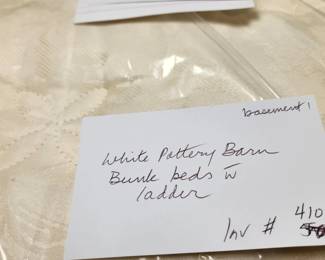 basement
White Pottery Barn
Bunk beds w̄
ladder
Inv # 410